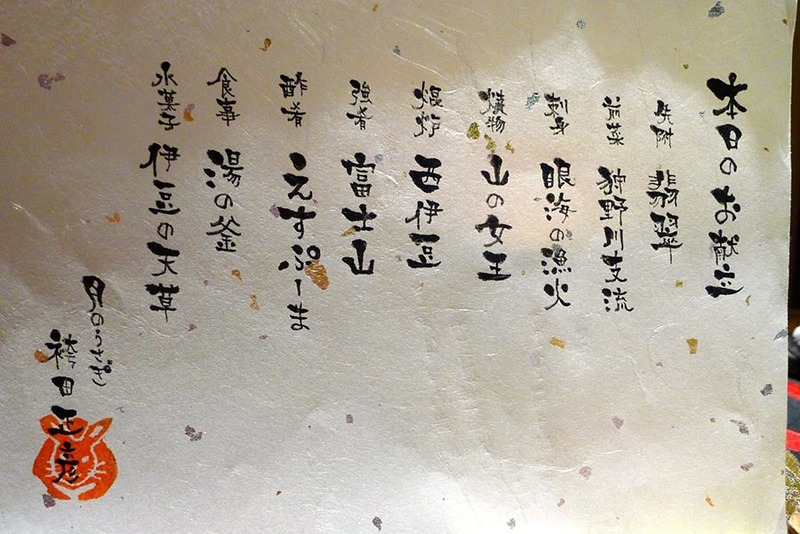 本日のお献立
先附 翡翠
前菜 狩野川支流
刺身 眼海の漁火
焼物 山の女王
焜炉 西伊豆
強肴 富士山
酢肴 えすぷーま
食事 湯の釜
水菓子 伊豆の天草
月のうさぎ
袴田正彦